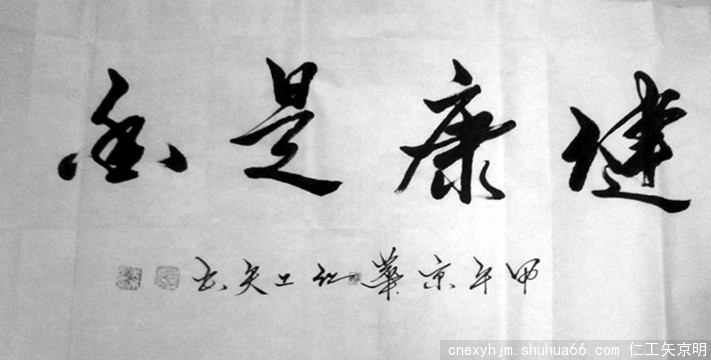 健康是金
甲午京華仁工矢书
cnexyhjm.shuhua66.com 仁工矢京明